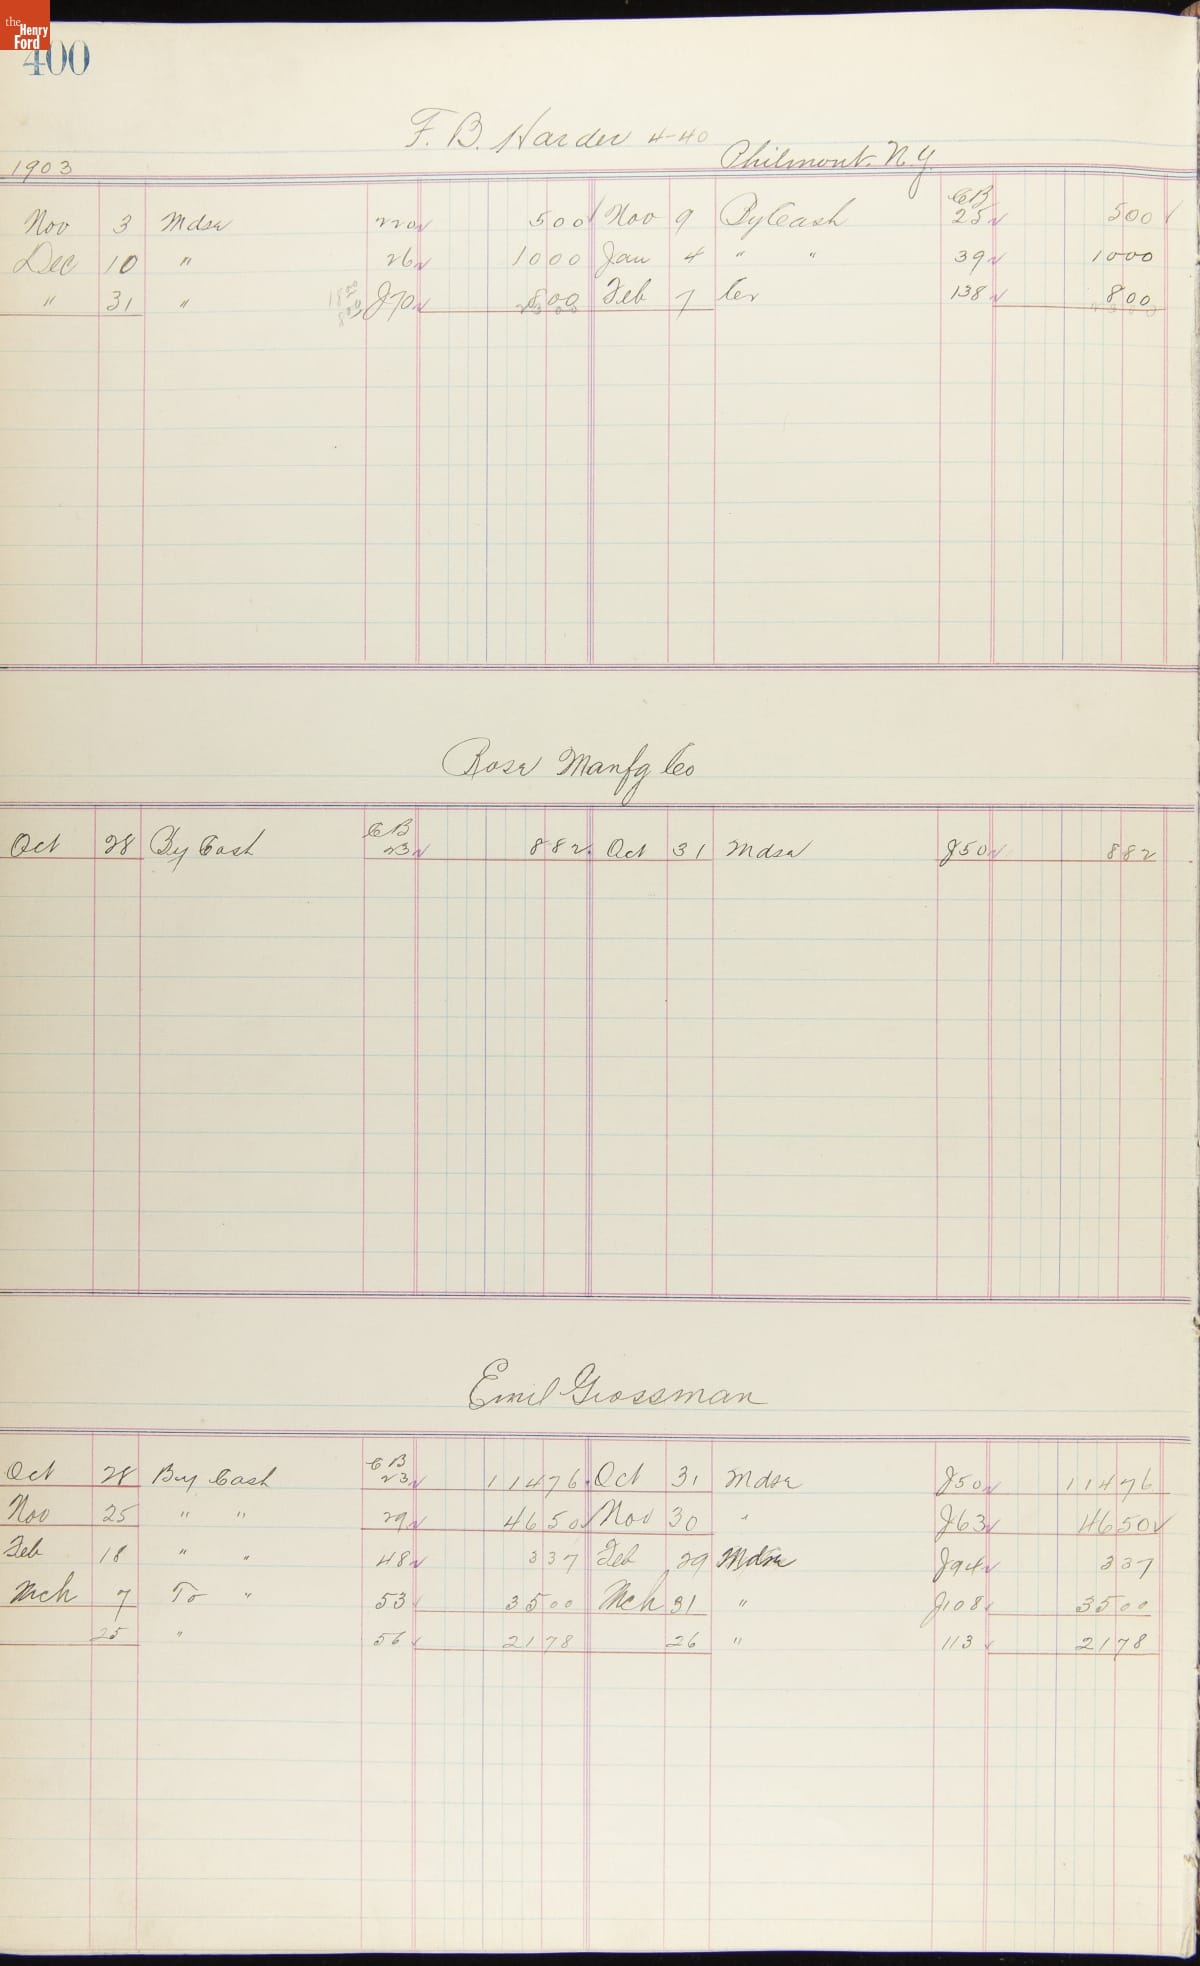 the
Henry
Ford
400
F. B. Harder 4-40
1903 Philmont. N.Y.
CB
Nov 3 Mdse 220 500 Nov 9 By Cash 25 500
Dec 10 " 26 1000 Jan 4 " " 39 1000
" 31 " 1800 800 J70 800 Feb 7 138 800
Rose Manfg Co
CB
Oct 28 By Cash 23 882 Oct 31 Mdse J50 882
Emil Grossman
CB
Oct 28 By Cash 23 11476 Oct 31 Mdse J50 11476
Nov 25 " " 29 4650 Nov 30 " J63 4650
Feb 18 " " 48 337 Feb 29 Mdse J94 337
Mch 7 To " 53 3500 Mch 31 " J108 3500
25 " 56 2178 26 " 113 2178